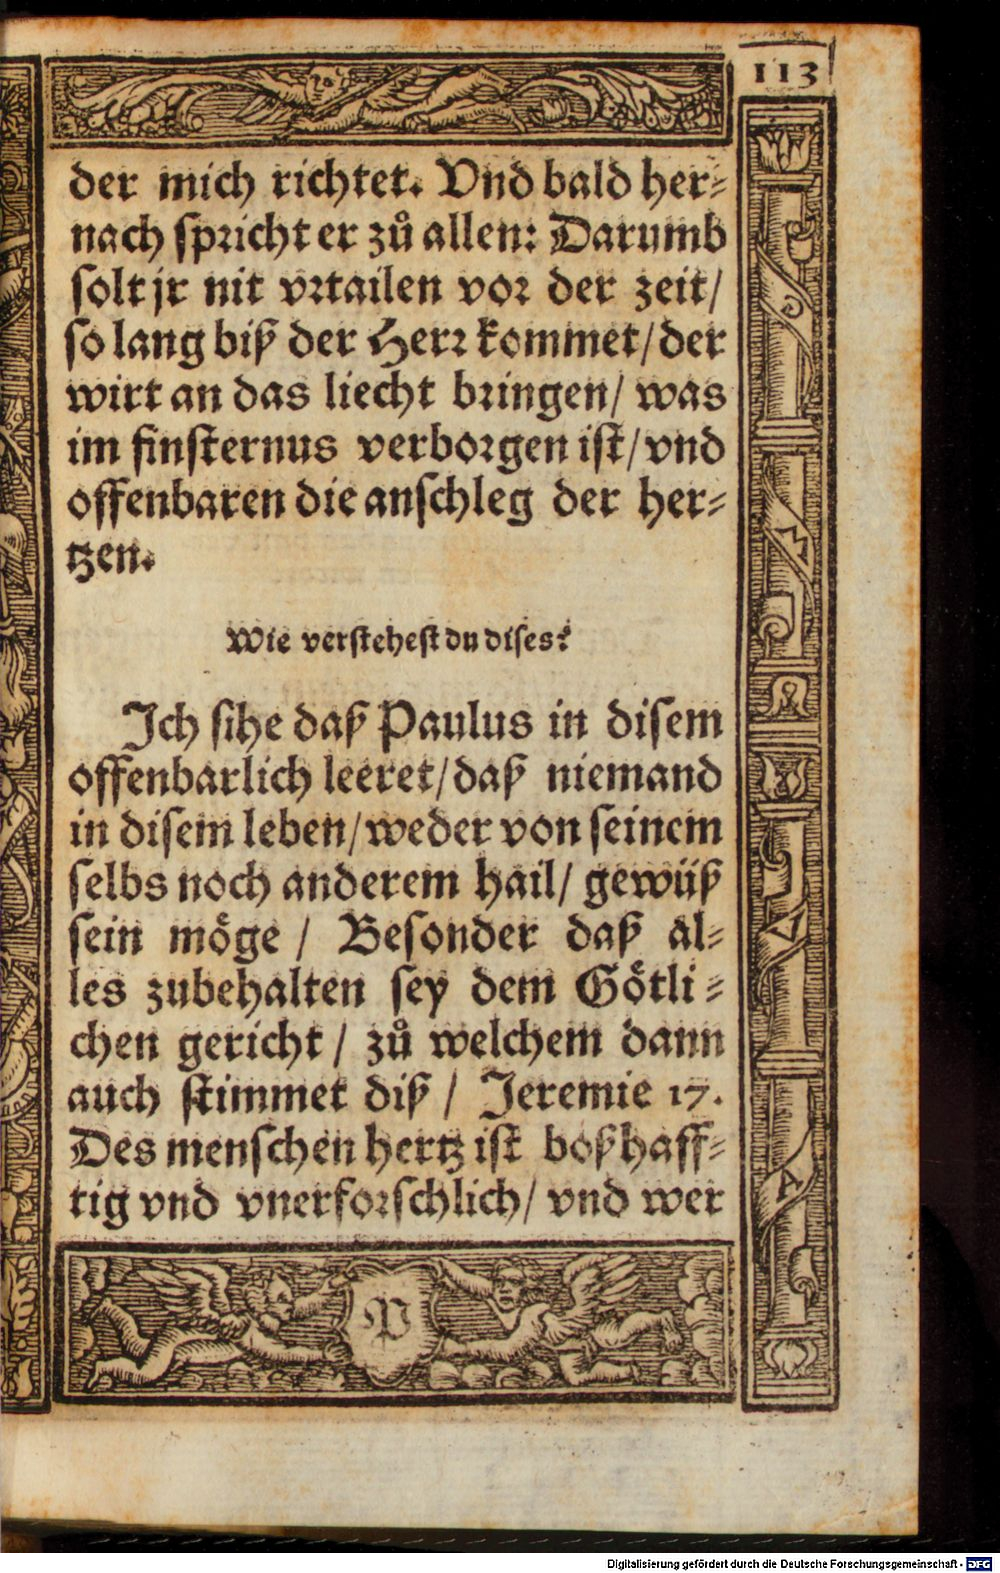 113
der mich richtet. Vnd bald her⸗
nach spricht er zů allen: Darumb
solt jr nit vrtailen vor der zeit/
so lang biß der Herr kommet/der
wirt an das liecht bringen/ was
im finsternus verborgen ist/vnd
offenbaren die anschleg der her⸗
tzen.
Wie verstehest du dises?
Ich sihe daß Paulus in disem
offenbarlich leeret/daß niemand
in disem leben/weder von seinem
selbs noch anderem hail/ gewüß
sein möge / Besonder daß al⸗
les zubehalten sey dem Götli⸗
chen gericht / zů welchem dann
auch stimmet diß / Jeremie 17.
Des menschen hertz ist boßhaff⸗
tig vnd vnerforschlich/ vnd wer
P
Digitalisierung gefördert durch die Deutsche Forschungsgemeinschaft - DFG